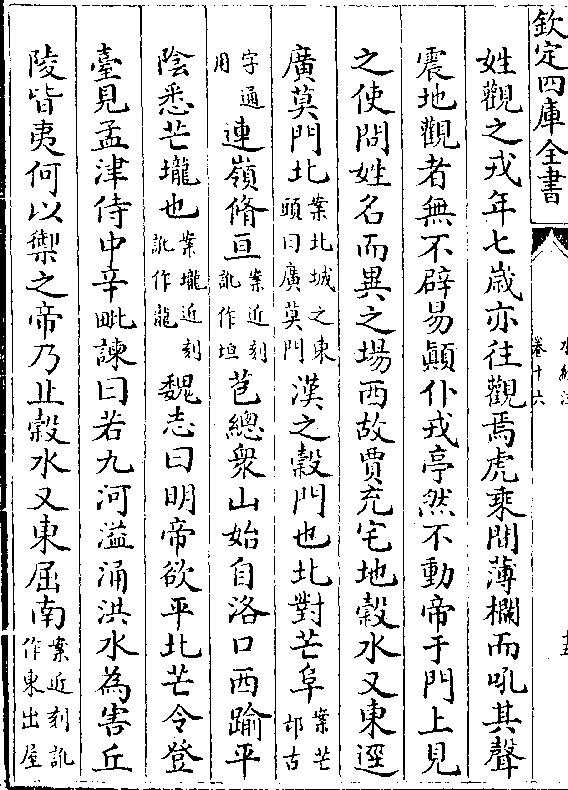 欽定四庫全書
水經注
卷十六
十五
姓觀之戎年七歳亦往觀焉虎乘間薄欄而吼其聲
震地觀者無不辟易顛仆戎亭然不動帝于門上見
之使問姓名而異之場西故賈充宅地穀水又東逕
廣莫門北案北城之東頭曰廣莫門漢之穀門也北對芒阜案芒邙古
字通用連嶺脩亘案近刻訛作垣苞總衆山始自洛口西踰平
陰悉芒壠也案壠近刻訛作龍魏志曰明帝欲平北芒令登
臺見孟津侍中辛毗諫曰若九河溢涌洪水為害丘
陵皆夷何以禦之帝乃止穀水又東屈南案近刻訛作東出屋